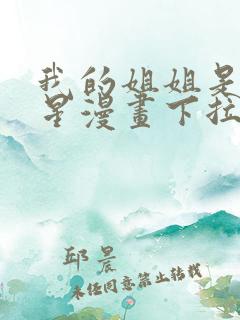 我的姐姐是
星漫畫下拉
邱晨
未经同意禁止转载